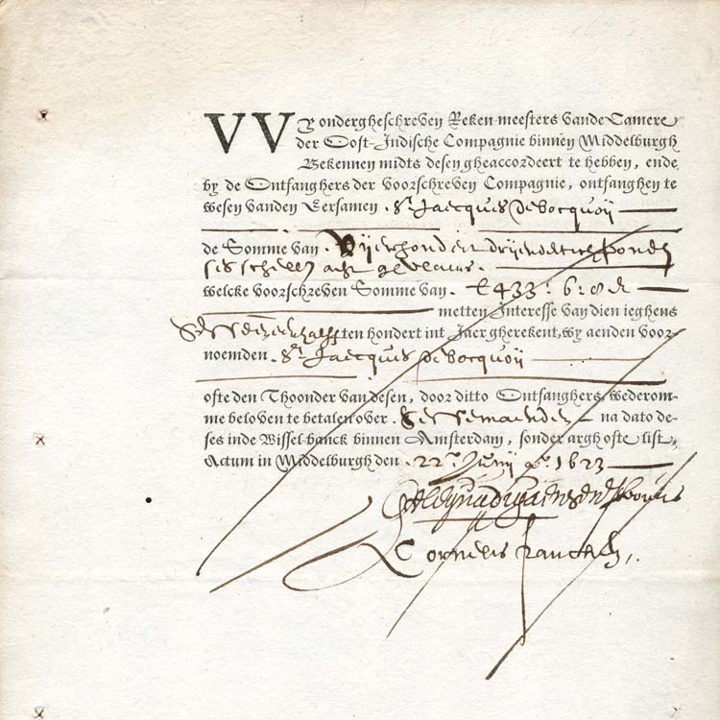 VVy ondergheschreven Reken-meesters vande Camere
der Oost-Indische Compagnie binnen Middelburgh
Bekennen midts desen gheaccordeert te hebben, ende
by de Ontfanghers der voorschreven Compagnie, ontfanghen te
wesen vanden Eersamen Sr. Jaecques de bocquoij
de Somme van vierhondert drijendertich ponden
ses schellen acht
welcke voorschreven Somme van £ 433: 6: 8 d
metten Interesse van dien ieghens
ten hondert int Jaer gherekent, wy aenden voor-
noemden Sr. Jaecques de bocquoij
ofte den Thoonder van desen, door ditto Ontfanghers, wederom-
me beloven te betalen over maenden na dato de-
ses inde Wissel-banck binnen Amsterdam, sonder argh ofte list,
Actum in Middelburgh den 22en Junij ao. 1623
Cornelis